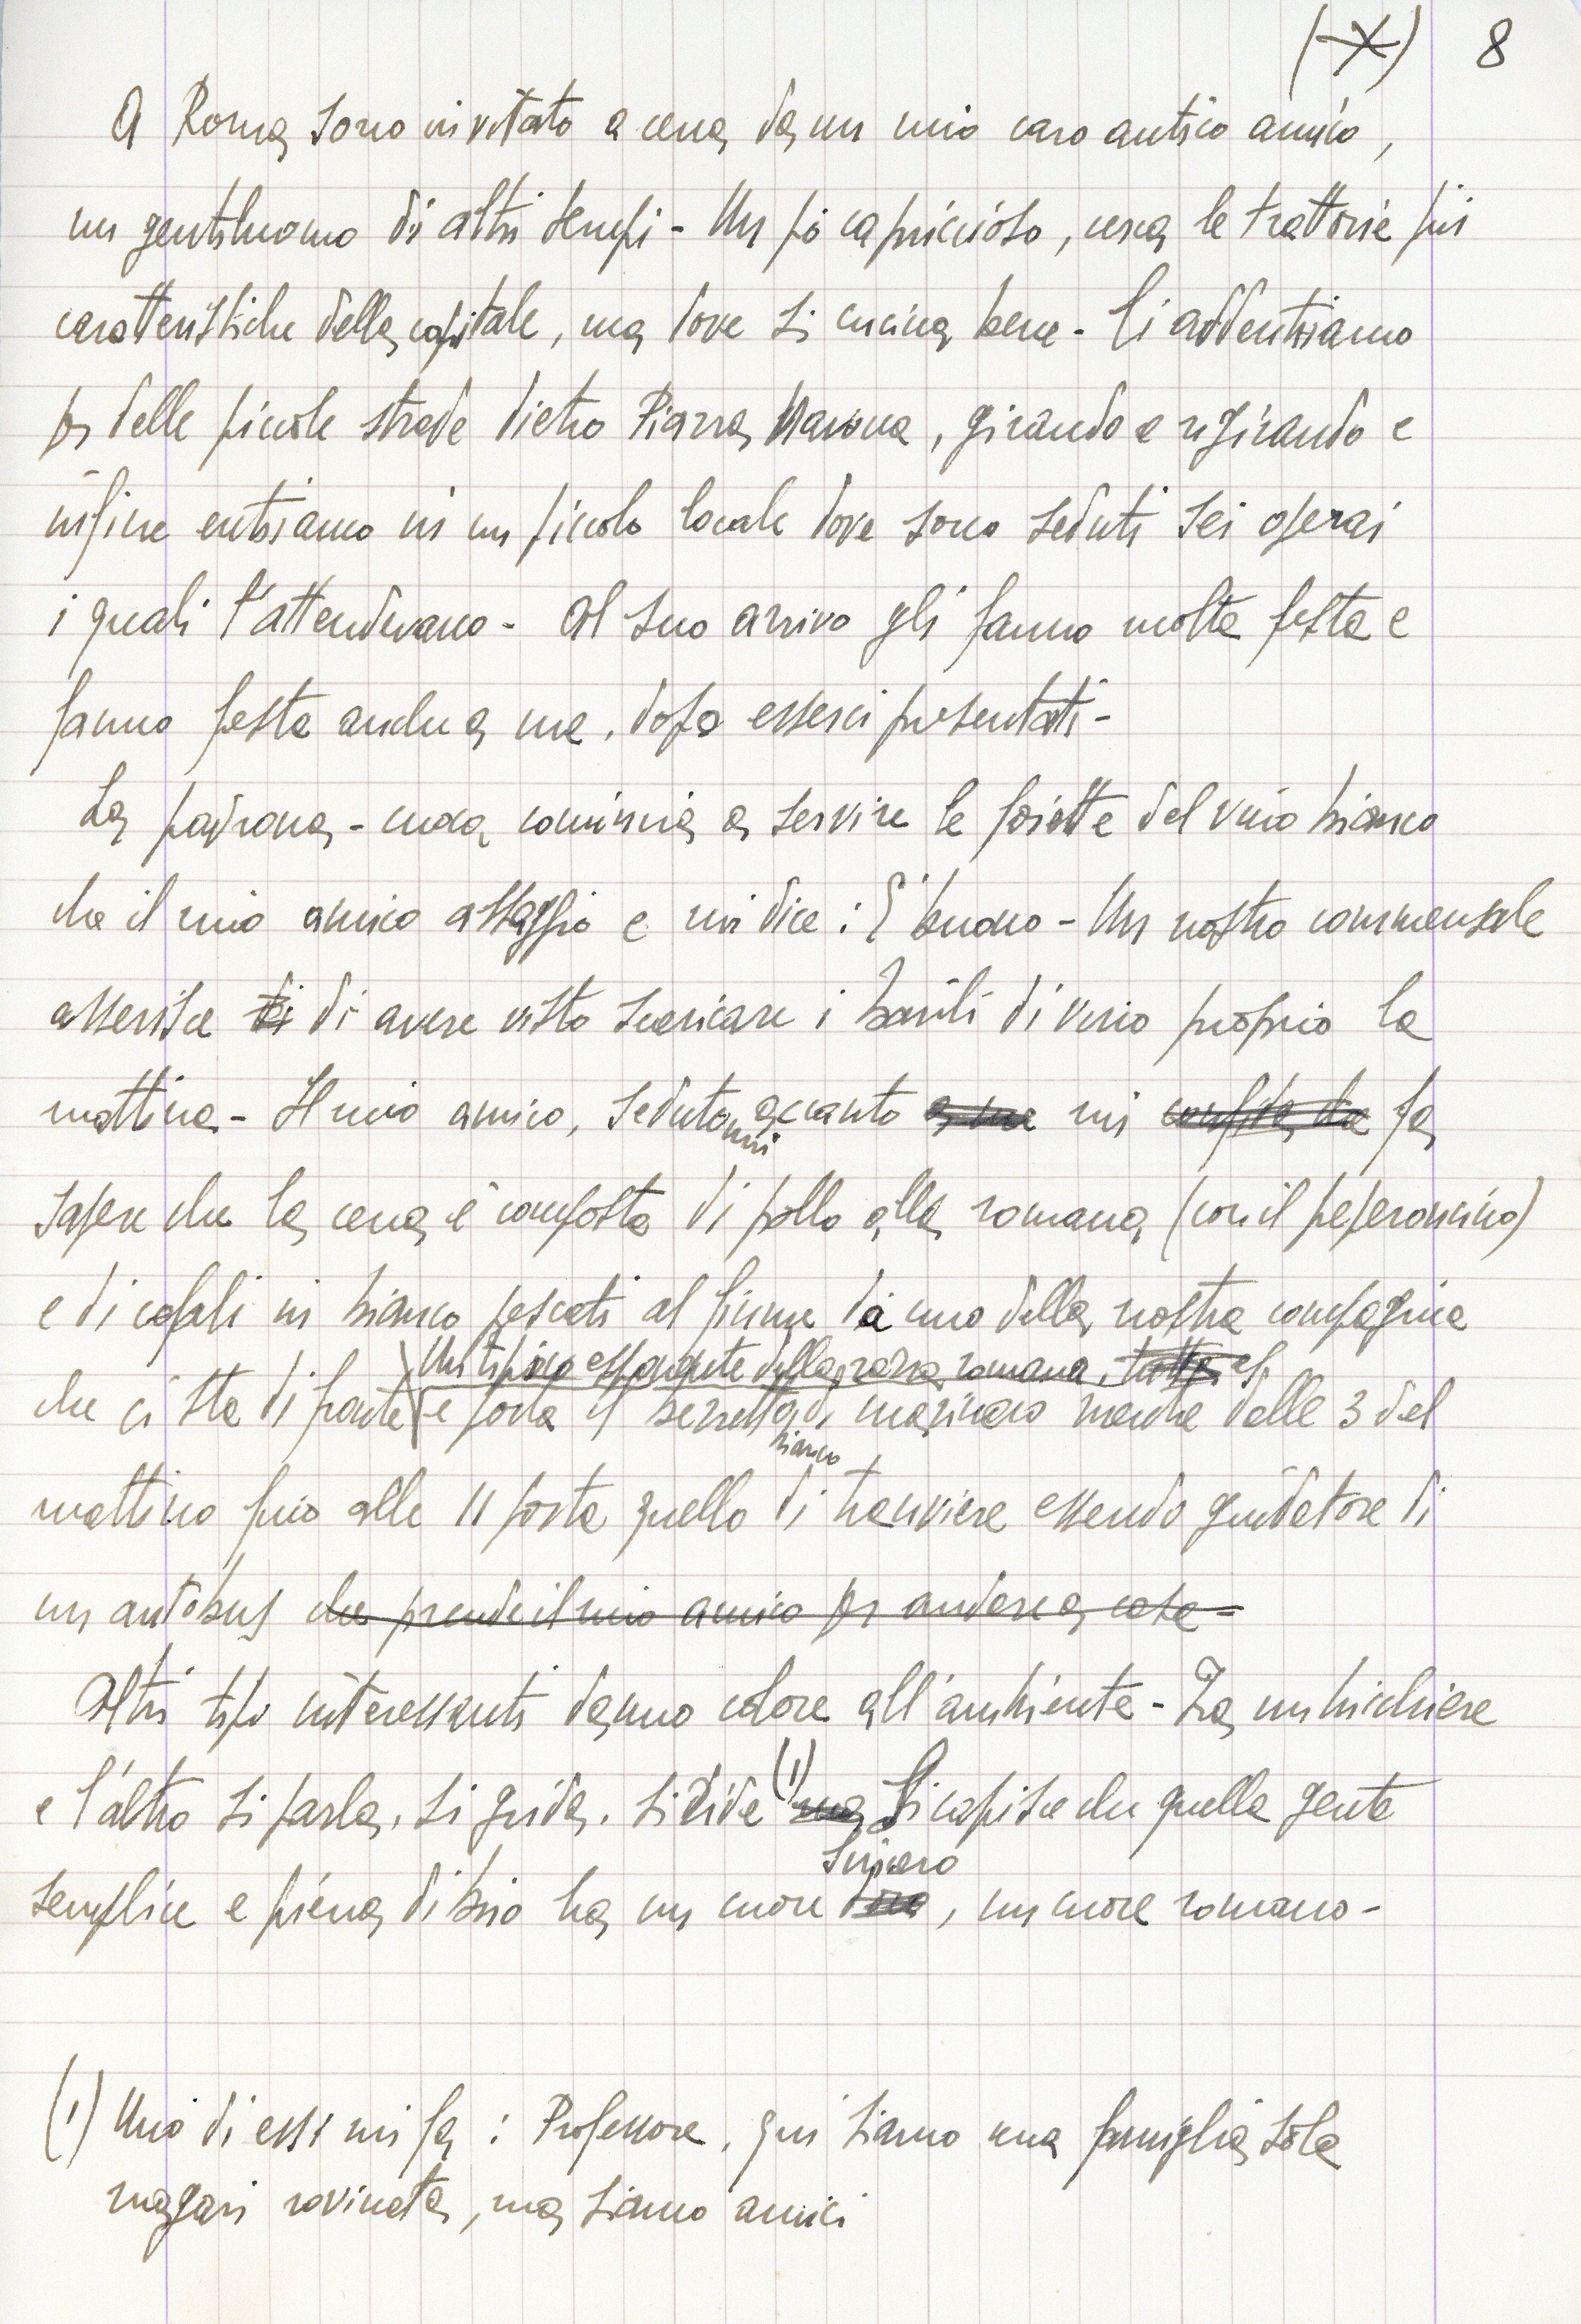 (X) 8
A Roma sono invitato a cena da un mio caro antico amico,
un gentiluomo di altri tempi - Un pò capriccioso, cerca le trattorie più
caratteristiche della capitale, ma dove si cucina bene - Ci addentriamo
per delle piccole strade dietro Piazza Navona, girando e rigirando e
infine entriamo in un piccolo locale dove sono seduti sei operai
i quali l'attendevano - Al suo arrivo gli fanno molta festa e
fanno festa anche a me, dopo esserci presentati -
La padrona - cuoca comincia a servire le foiette del vino bianco
che il mio amico assaggia e mi dice : È buono - Un nostro commensale
asserisce di di avere visto scaricare i barili di vino proprio la
mattina - Il mio amico, sedutomi accanto a me mi confida che fa
sapere che la cena è composta di pollo alla romana (con il peperoncino)
e di cefali in bianco pescati al fiume da uno della nostra compagnia
Un tipico esponente della razza romana, tutto
che ci sta di fronte e porta il berretto di marinaio mentre dalle 3 del
bianco
mattino fino alle 11 porta quello di tranviere essendo guidatore di
un autobus che prende il mio amico per andare a casa -
Altri tipi interessanti danno colore all'ambiente - Tra un bicchiere
e l'altro si parla, si grida, si ride (1) ma Si capisce che quella gente
sincero
semplice e piena di brio ha un cuore, un cuore romano -
(1) Uno di essi mi fa : Professore, qui siamo una famiglia sola
magari rovinata, ma siamo amici